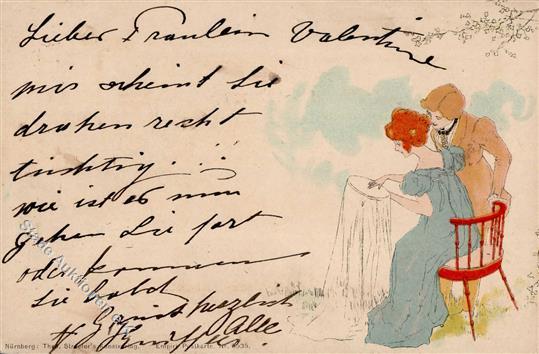 Lieber Fräulein Valentine
mir scheint Sie
drohen recht
tüchtig...
wie ist es nun
Gehen Sie fort
oder kommen
Sie bald
herzlich
Alle
Nürnberg: Theo. Stroefer's Kunstverlag. Empire Postkarte. Nr.